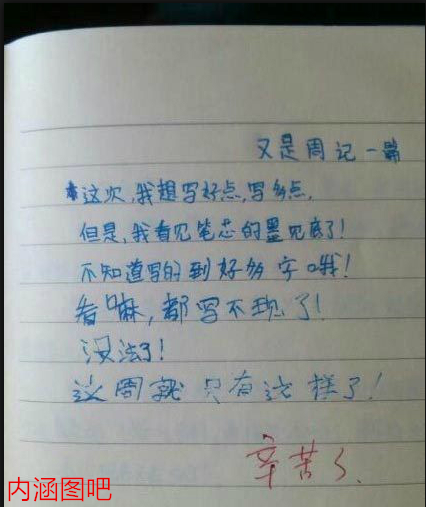 又是周记一篇
这次,我想写好点,写多点,
但是,我看见笔芯的墨见底了!
不知道写的到好多字哦!
看嘛,都写不现了!
没法了!
这周就只有这样了!
辛苦了、
内涵图吧